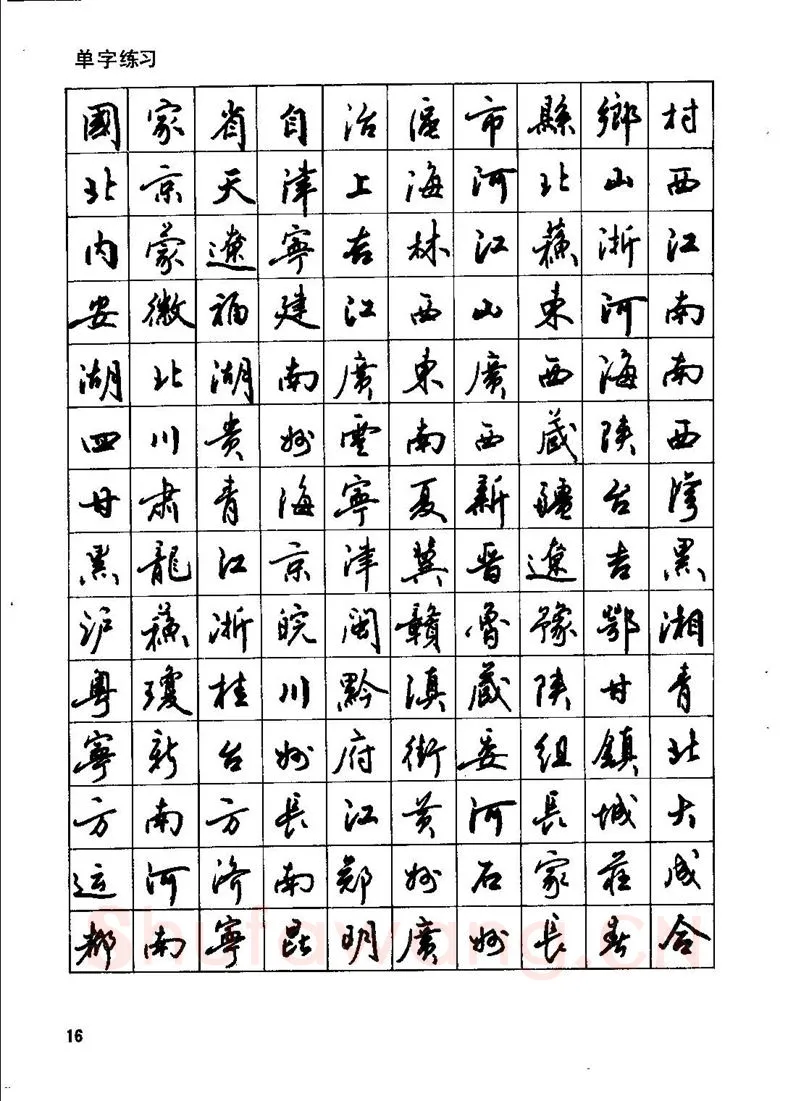 单字练习
國家省自治區市縣鄉村
北京天津上海河北山西
内蒙遼寧吉林江蘇浙江
安徽福建江西山東河南
湖北湖南廣東廣西海南
四川贵州雲南西藏陝西
甘肃青海寧夏新疆台灣
黑龍江京津冀晋遼吉黑
沪蘇浙皖闽赣魯豫鄂湘
粤瓊桂川黔滇藏陝甘青
寧新台州府街委組鎮北
方南方長江黄河長城大
运河济南郑州石家莊成
都南寧昆明廣州長春合
16
Shufawang.CN